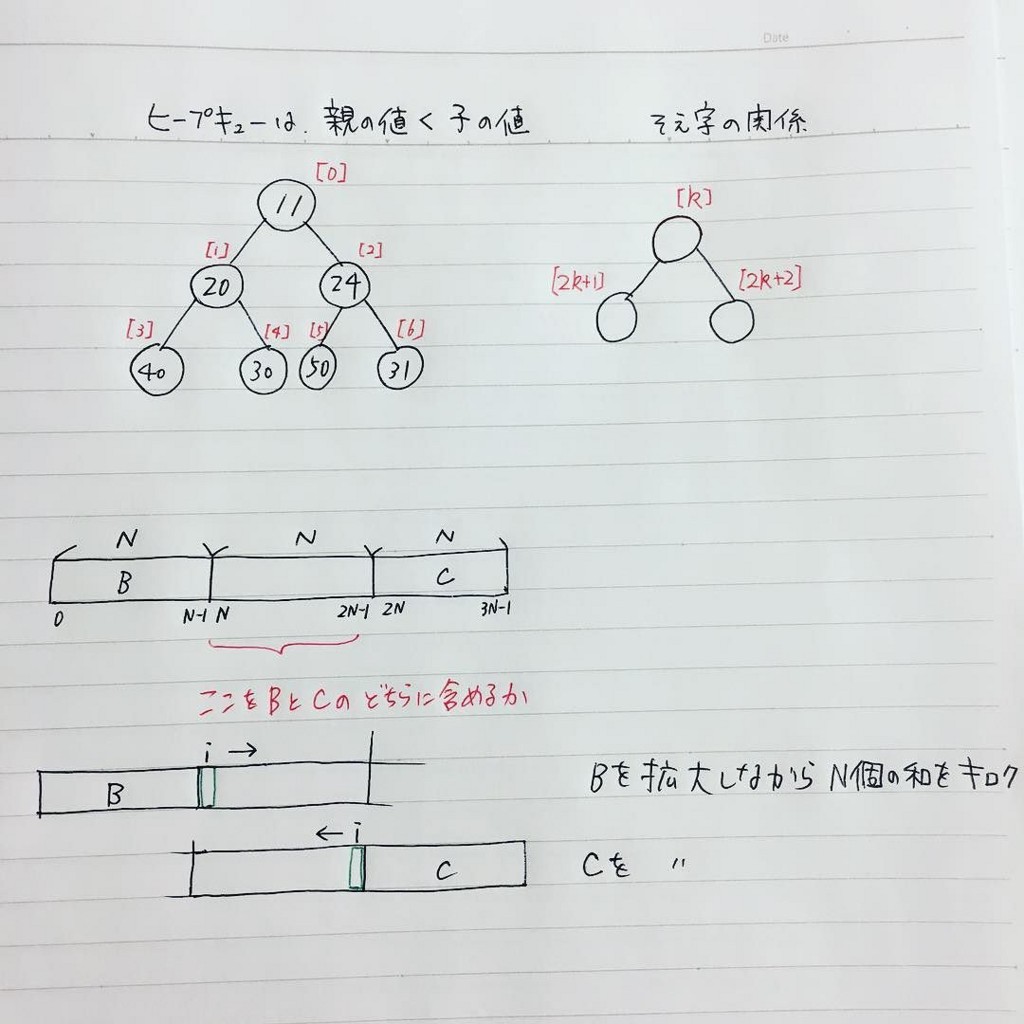 Date
ヒープキューは、親の値 < 子の値
そえ字の関係
[0]
11
[1] [2]
20 24
[3] [4] [5] [6]
40 30 50 31
[k]
[2k+1] [2k+2]
N N N
B C
0 N-1 N 2N-1 2N 3N-1
ここをBとCのどちらに含めるか
i →
B
Bを拡大しながらN個の和をキロク
← i
C
Cを 〃